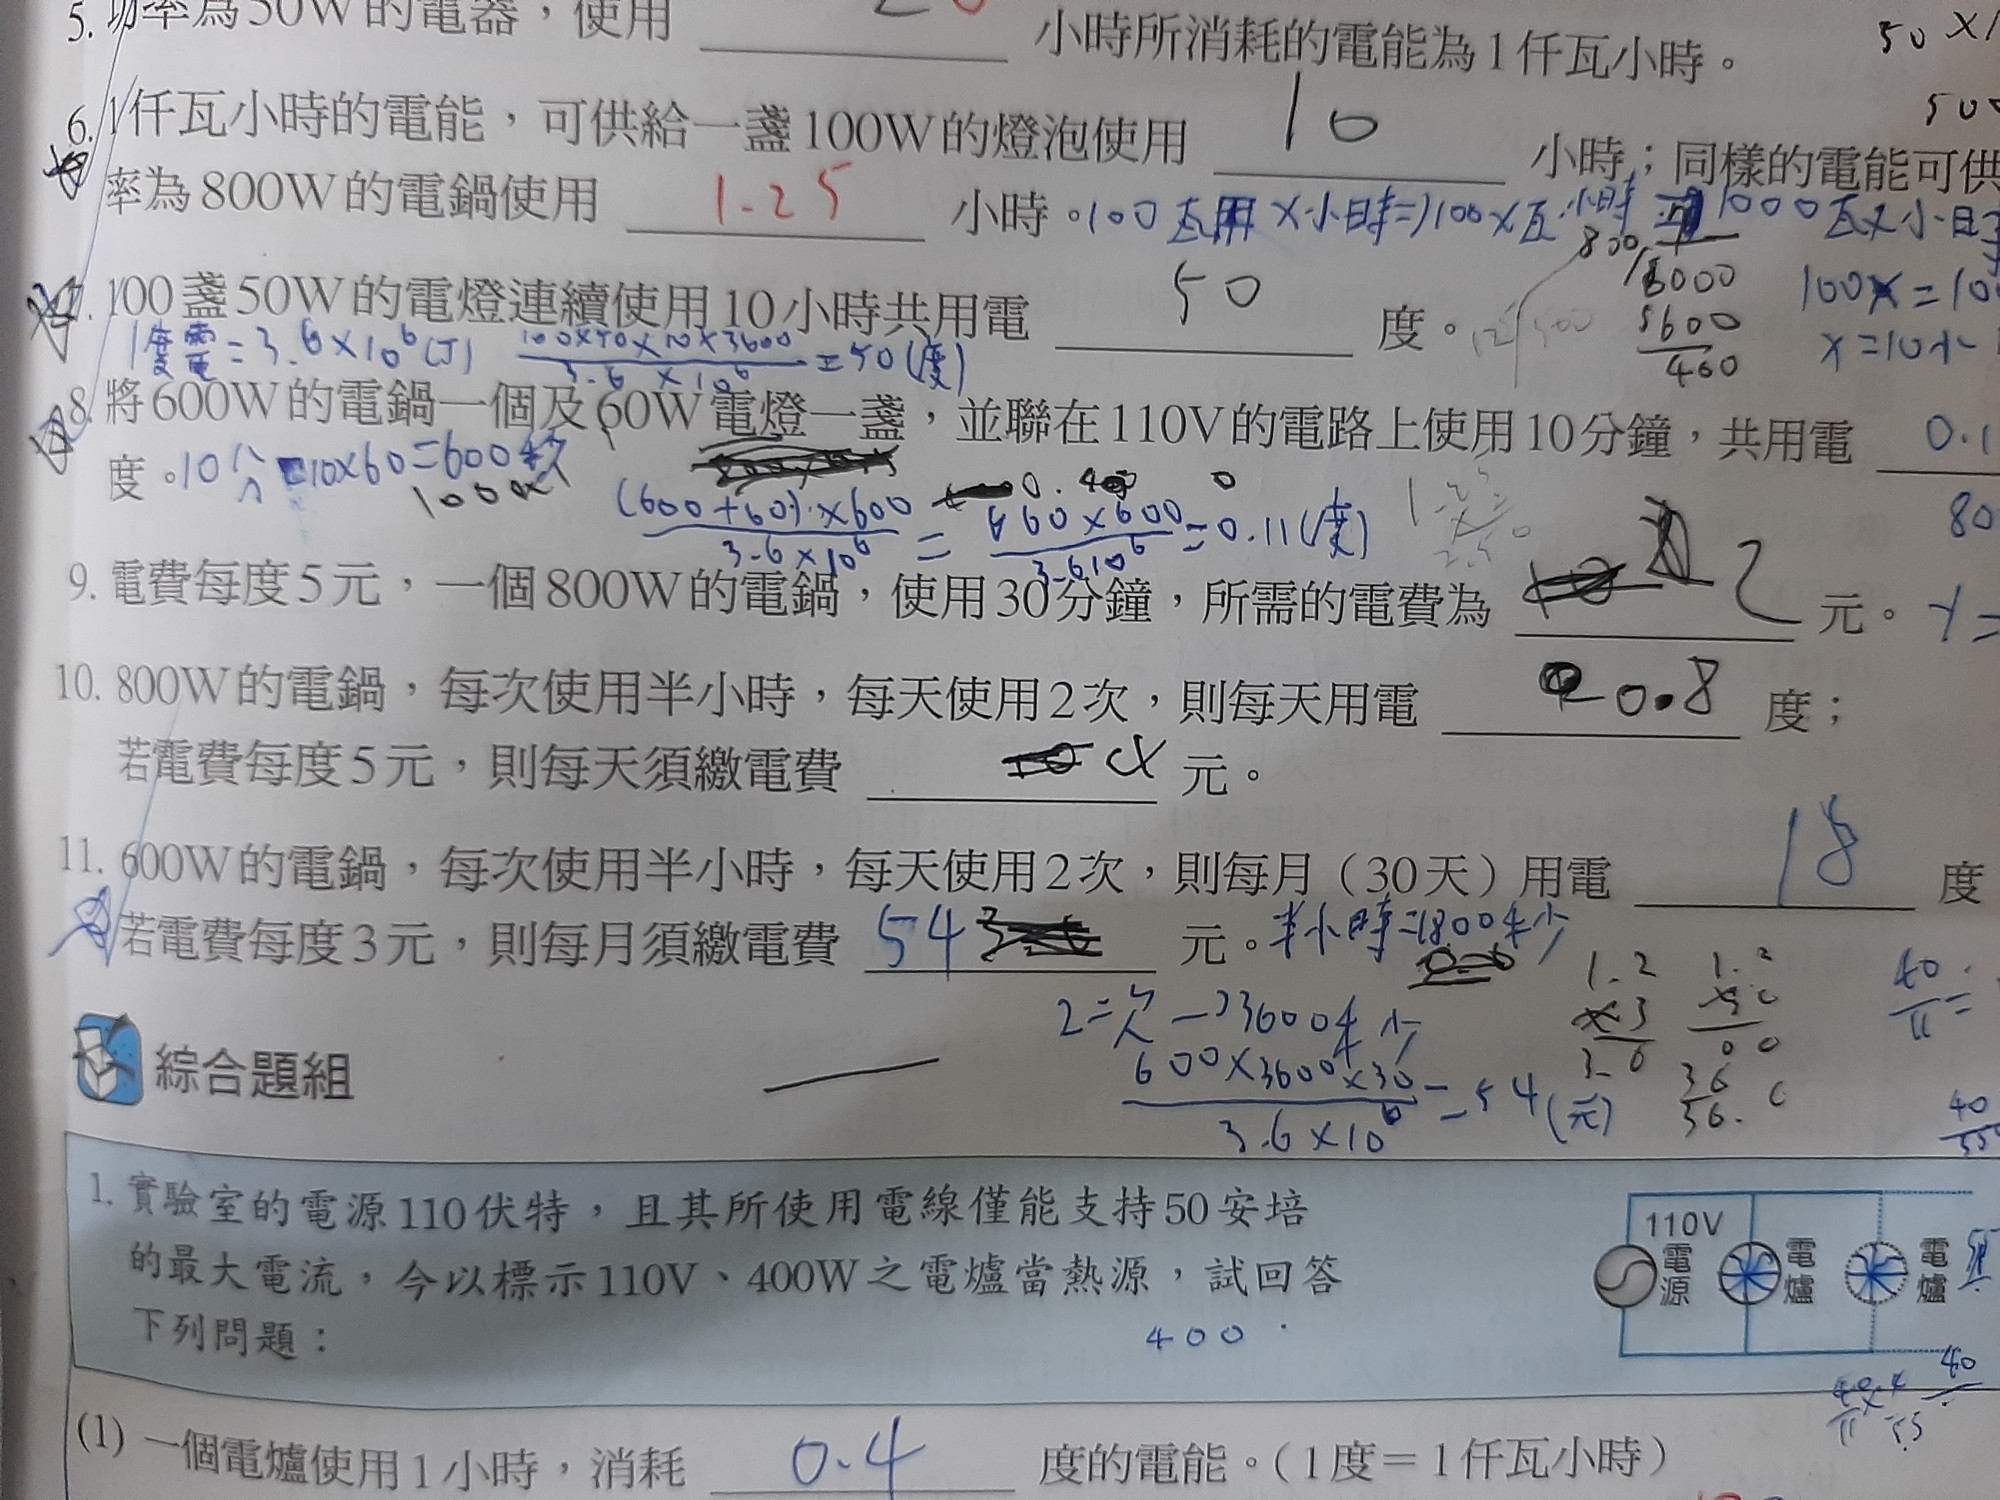 5. 功率為50W的電器，使用 20 小時所消耗的電能為1仟瓦小時。
50×1
500
6. 1仟瓦小時的電能，可供給一盞100W的燈泡使用 10 小時；同樣的電能可供
率為800W的電鍋使用 1.25 小時。
100瓦 × 小時 ⇒ 100×瓦小時 1000瓦×小時
7. 100盞50W的電燈連續使用10小時共用電 50 度。
1度電=3.6×10⁶(J) 100×50×10×3600 / 3.6×10⁶ = 50(度)
100x=100
x=10小
8. 將600W的電鍋一個及60W電燈一盞，並聯在110V的電路上使用10分鐘，共用電 0.1
度。
10分 10×60=600秒
(600+60)×600 / 3.6×10⁶ = 660×600 / 3.610⁶ = 0.11(度)
80
9. 電費每度5元，一個800W的電鍋，使用30分鐘，所需的電費為 2 元。
10. 800W的電鍋，每次使用半小時，每天使用2次，則每天用電 0.8 度；
若電費每度5元，則每天須繳電費 元。
11. 600W的電鍋，每次使用半小時，每天使用2次，則每月（30天）用電 18 度
若電費每度3元，則每月須繳電費 54 元。
半小時=1800秒
2次→3600秒
600×3600×30 / 3.6×10⁶ = 54(元)
綜合題組
1. 實驗室的電源110伏特，且其所使用電線僅能支持50安培
的最大電流，今以標示110V、400W之電爐當熱源，試回答
下列問題：
400
110V
電源
電爐
電爐
(1) 一個電爐使用1小時，消耗 0.4 度的電能。（1度＝1仟瓦小時）